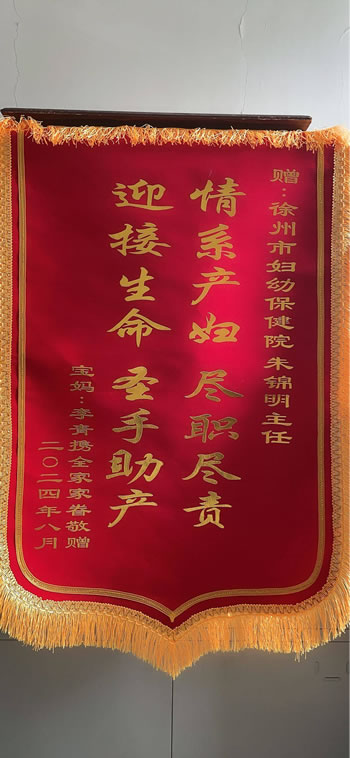 赠：徐州市妇幼保健院朱锦明主任
情系产妇 尽职尽责
迎接生命 圣手助产
宝妈：李青携全家家眷敬赠
二〇二四年八月